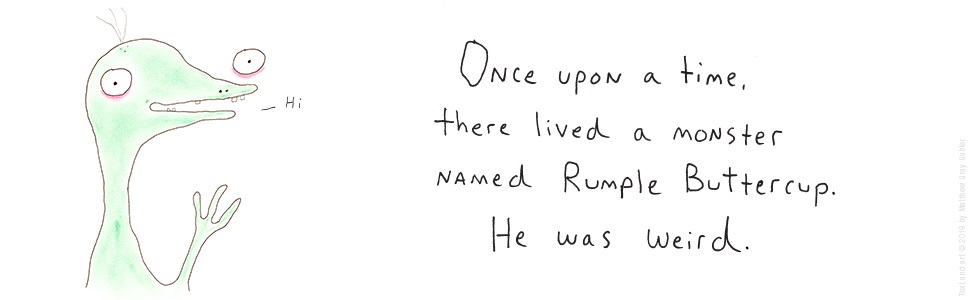 Hi
Once upon a time,
there lived a monster
named Rumple Buttercup.
He was weird.
Text and art © 2019 by Matthew Gray Gubler